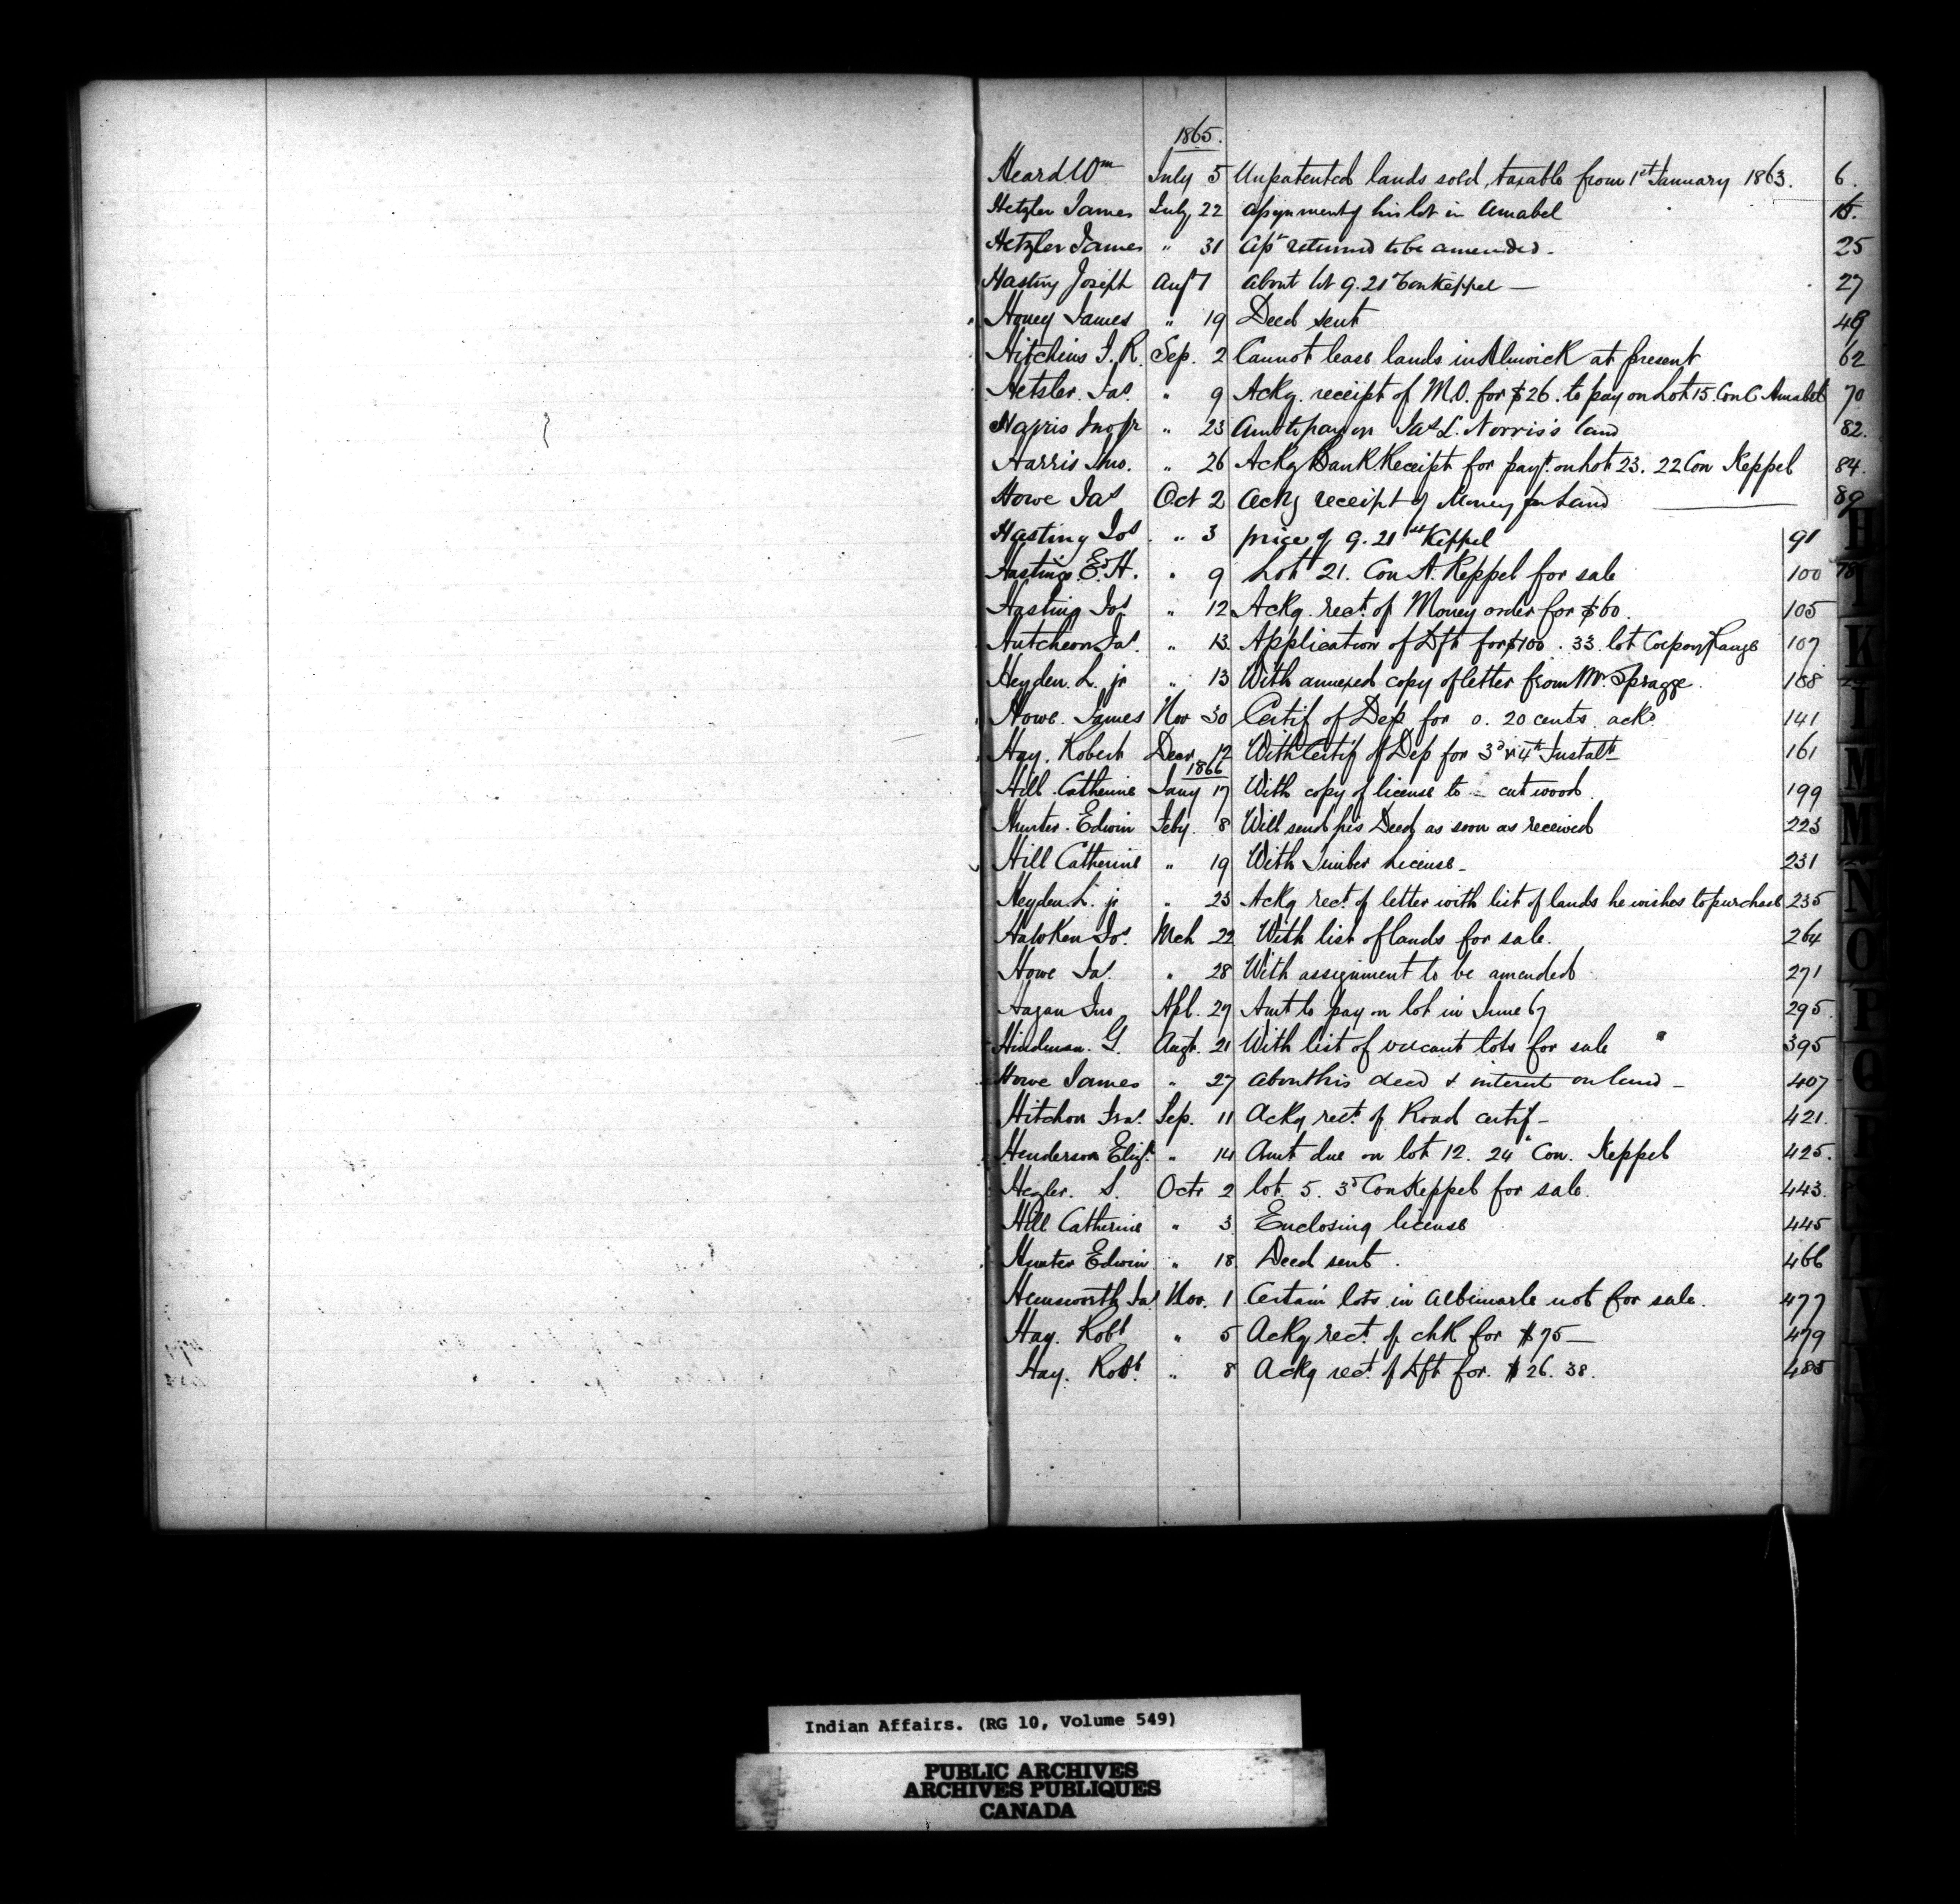 1865.
Heard Wm July 5 Unpatented lands sold, taxable from 1st January 1863. 6.
Hetzler James July 22 assignment of his lot in Amabel 15.
Hetzler James " 31 Asst returned to be amended - 25
Hasting Joseph Augt 1 about lot 9. 21st Con Keppel — 27
Honey James " 19 Deed sent 49
Hitchins J. R. Sep. 2 Cannot lease lands in Alnwick at present 62
Hetsler Jas. " 9 Ackg. receipt of M.O. for $26. to pay on Lot 15. Con C Amabel 70
Harris Jno Jr " 23 Amt to pay on Jas L. Norris's land 82.
Harris Jno. " 26 Ackg Bank Receipt for payt. on Lot 23. 22 Con Keppel 84.
Howe Jas Oct 2 Ackg receipt of Money for Land 89
Hasting Jos " 3 price of 9. 21st Keppel 91
Hastings E. H. " 9 Lot 21. Con A. Keppel for sale 100
Hasting Jos " 12 Ackg. rect. of Money order for $60. 105
Hutcheon Jas. " 13. Application of Dft for $100. 33. lot Range 107
Heyden. L. jr " 13 With annexed copy of letter from Mr. Spragge. 108
Howe. James Nov 30 Certif of Dep for 0. 20 cents ackd. 141
Hay. Robert Decr. 12 With Certif of Dep for 3d & 4th Instalt 161
1866
Hill Catherine Jany 17 With copy of license to - cut wood. 199
Hunter. Edwin Feby. 8 Will send his Deed as soon as received 223
Hill Catherine " 19 With Timber License - 231
Heyden L. jr " 23 Ackg rect. of letter with list of lands he wishes to purchase 235
Hawken Jos. Mch 22 With list of lands for sale. 264
Howe Jas. " 28 With assignment to be amended 271
Hagan Jno Apl. 27 Amt to pay on lot in June 67 295.
G. Augt. 21 With list of vacant lots for sale " 395
Howe James " 27 about his deed & interest on land - 407
Hitchon Sep. 11 Ackg rect. of Road certif - 421.
Henderson Eliz. " 14 Amt due on lot 12. 24" Con. Keppel 425.
Hezler. S. Octr 2 lot. 5. 3d Con Keppel for sale. 443.
Hill Catherine " 3 Enclosing license 445
Hunter Edwin " 18 Deed sent. 466
Hemsworth Jas Nov. 1 Certain lots in Albemarle not for sale. 477
Hay. Robt " 5 Ackg rect. of chk for $75 — 479
Hay. Robt. " 8 Ackg rect. of Dft for. $26. 38. 485
H
I
K
L
M
M
N
O
P
Q
R
Indian Affairs. (RG 10, Volume 549)
PUBLIC ARCHIVES
ARCHIVES PUBLIQUES
CANADA